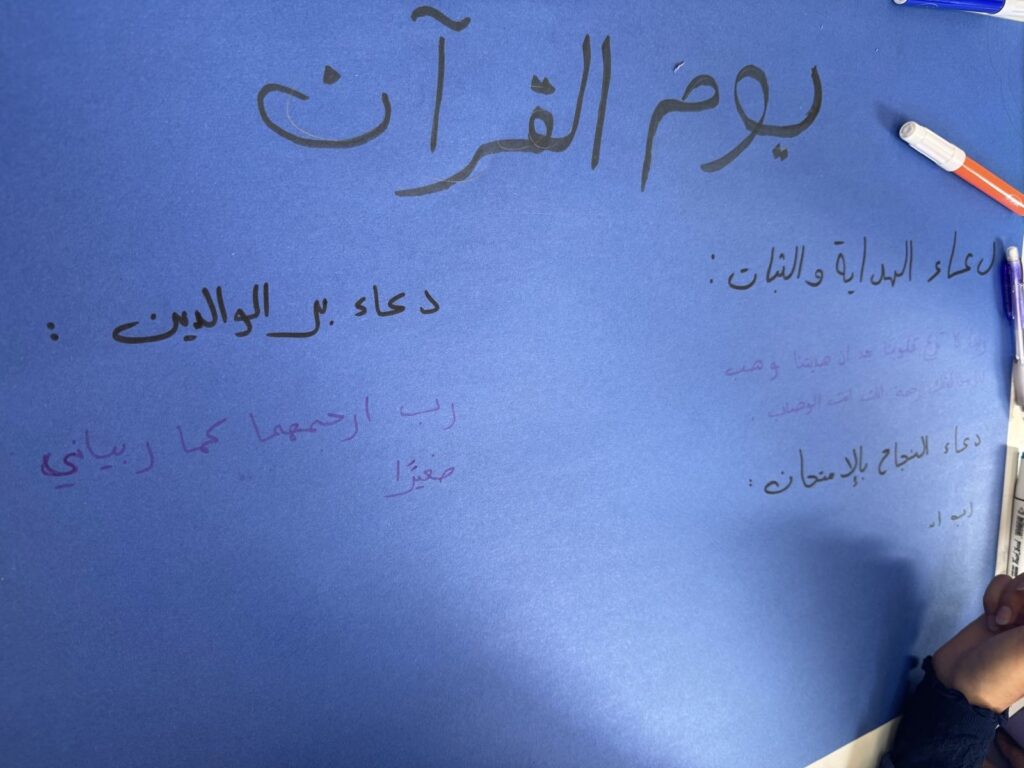 يوم القرآن
دعاء الهداية والثبات :
ربنا لا تزغ قلوبنا بعد إذ هديتنا وهب
رحمة انك انت الوهاب .
دعاء النجاح بالإمتحان :
دعاء بر الوالدين :
رب ارحمهما كما ربياني
صغيرًا